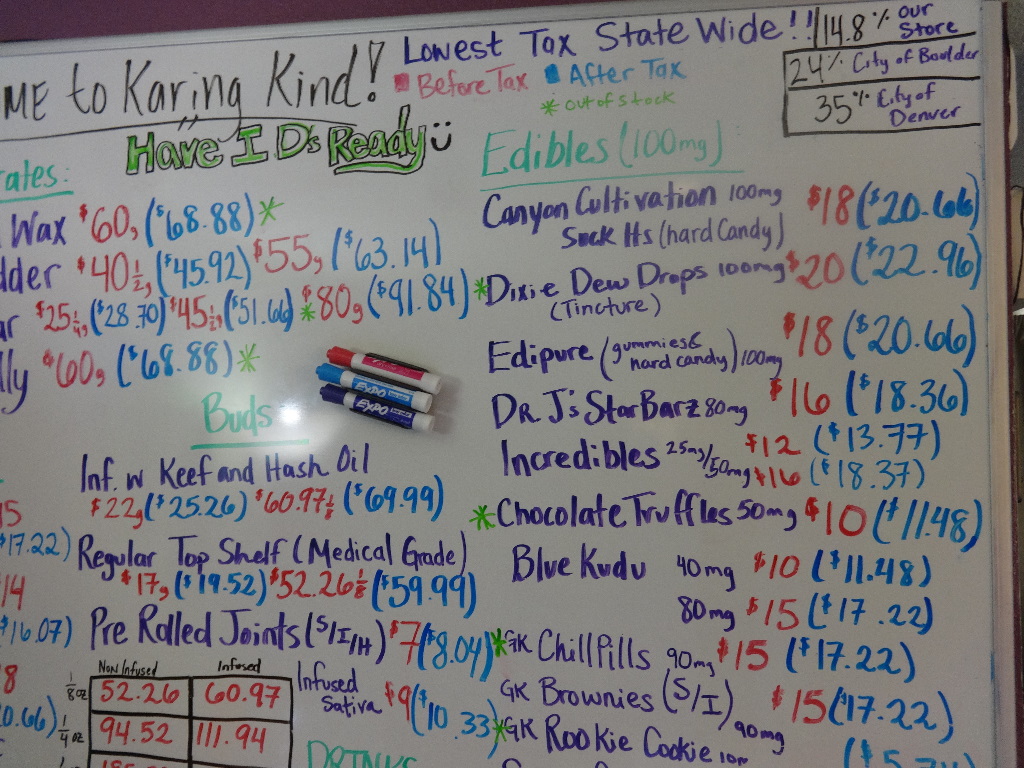 ME to Karing Kind!
Lowest Tax State Wide!!
14.8% our Store
24% City of Boulder
35% City of Denver
Before Tax After Tax
* out of stock
Have I D's Ready
rates:
Wax $60g ($68.88)*
dder $40 1/2g ($45.92) $55g ($63.14)
ar $25 1/4g ($28.70) $45 1/2g ($51.66) *$80g ($91.84)
lly $60g ($68.88)*
EXPO
EXPO
Buds
Inf. w Keef and Hash Oil
$22g ($25.26) $60.97 1/8 ($69.99)
Regular Top Shelf (Medical Grade)
$17g ($19.52) $52.26 1/8 ($59.99)
Pre Rolled Joints (S/I/H) $7 ($8.04)
Infused Sativa $9 ($10.33)
Non Infused Infused
1/8 oz 52.26 60.97
1/4 oz 94.52 111.94
DRINKS
15
$17.22)
14
$16.07)
8
0.66)
Edibles (100mg)
Canyon Cultivation 100mg $18 ($20.66)
Suck Its (hard Candy)
*Dixie Dew Drops 100mg $20 ($22.96)
(Tincture)
Edipure (gummies & hard candy) 100mg $18 ($20.66)
DR J's StarBarz 80mg $16 ($18.36)
Incredibles 25mg/50mg $12 ($13.77)
$16 ($18.37)
*Chocolate Truffles 50mg $10 ($11.48)
Blue Kudu 40mg $10 ($11.48)
80mg $15 ($17.22)
*GK Chill Pills 90mg $15 ($17.22)
GK Brownies (S/I) 90mg $15 ($17.22)
*GK Rookie Cookie 10m